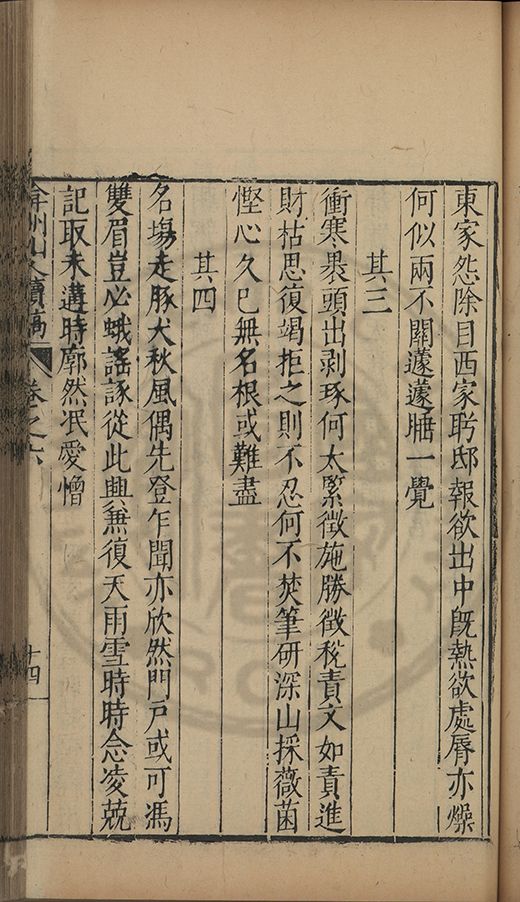 東家怨除目西家聍邸報欲出中旣熱欲處唇亦燥
何似兩不關蘧蘧牕一覺
其三
衝寒褁頭出剥琢何太緊徵施勝徵稅責文如責進
財枯思復竭拒之則不忍何不焚筆研深山採薇菌
慳心久已無名根或難盡
其四
名塲走豚犬秋風偶先登乍聞亦欣然門戸或可馮
雙眉豈必蛾謠諑從此興兼復天雨雪時時念凌兢
記取未遘時廓然泯愛憎
弇州山人續稿 卷之六 十四